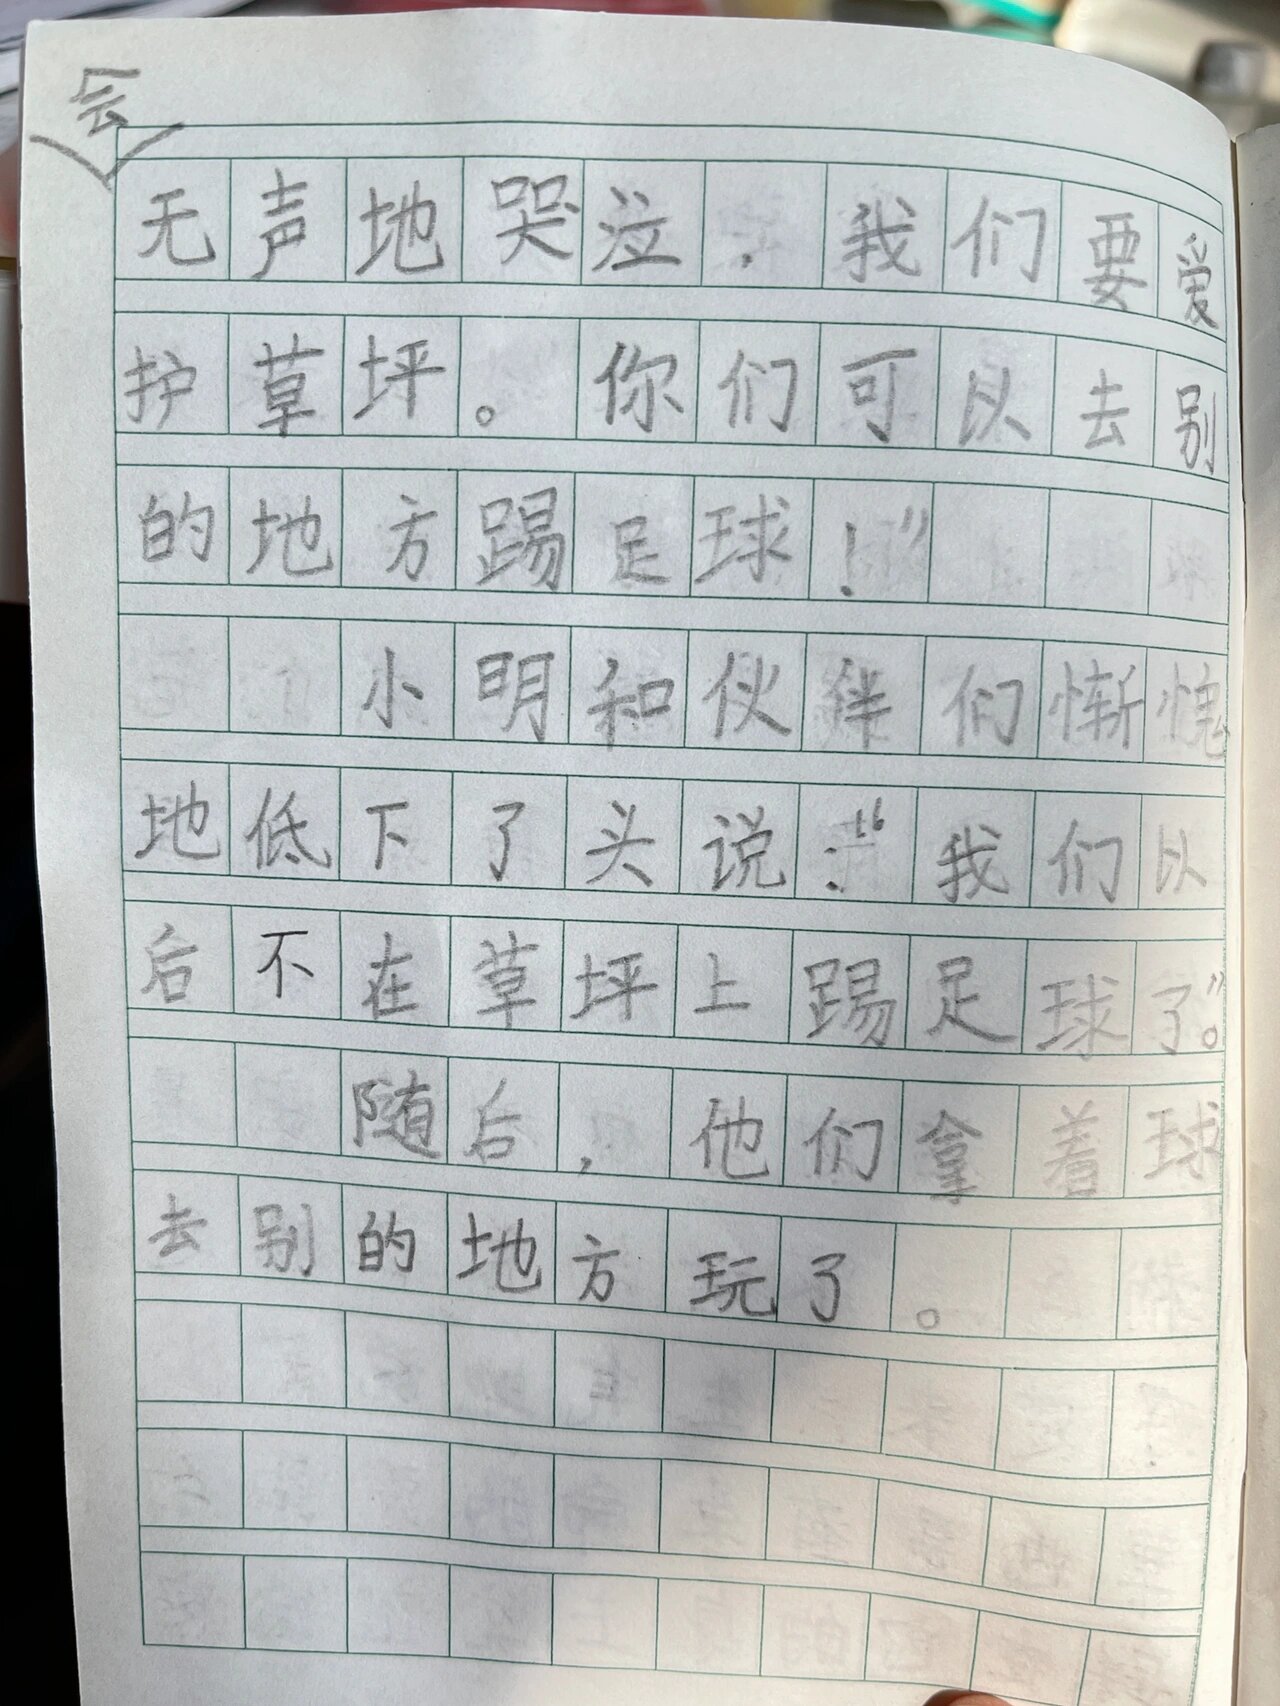 会
无声地哭泣，我们要爱
护草坪。你们可以去别
的地方踢足球！”
小明和伙伴们惭愧
地低下了头说：“我们以
后不在草坪上踢足球了。”
随后，他们拿着球
去别的地方玩了。